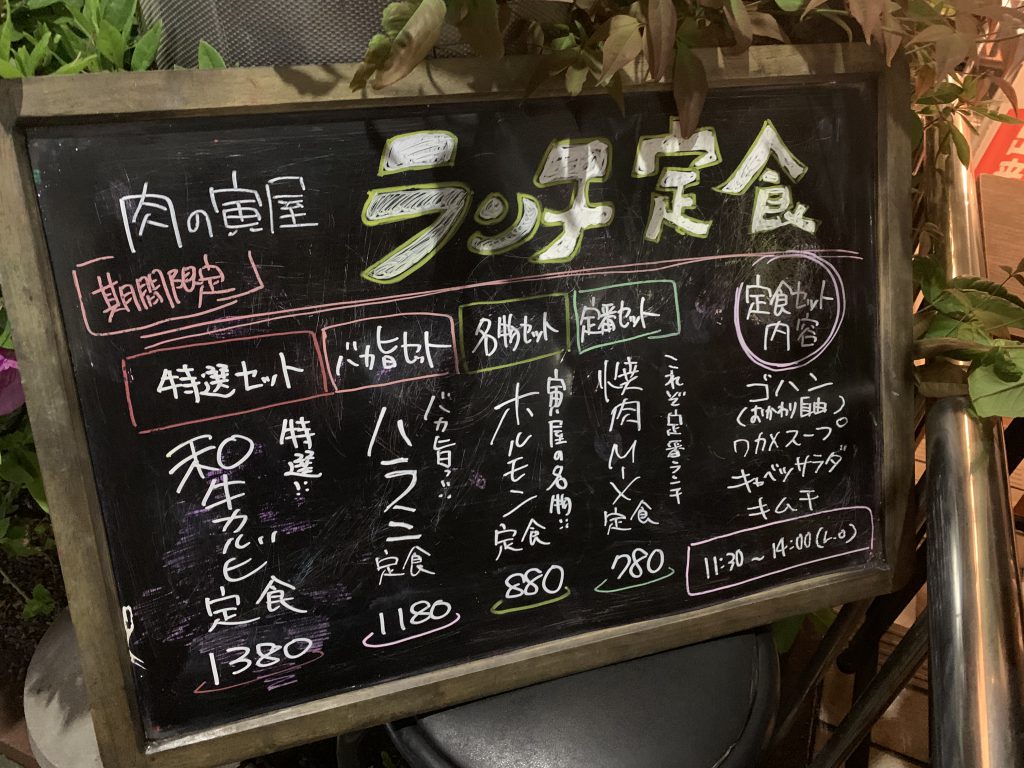 肉の寅屋
ランチ定食
期間限定
特選セット
特選!!
和牛カルビ定食
1380
バカ旨セット
バカ旨ッ!!
ハラミ定食
1180
名物セット
寅屋の名物!!
ホルモン定食
880
定番セット
これぞ定番ランチ
焼肉MIX定食
780
定食セット
内容
ゴハン
(おかわり自由)
ワカメスープ
キャベツサラダ
キムチ
11:30～14:00(L.O)